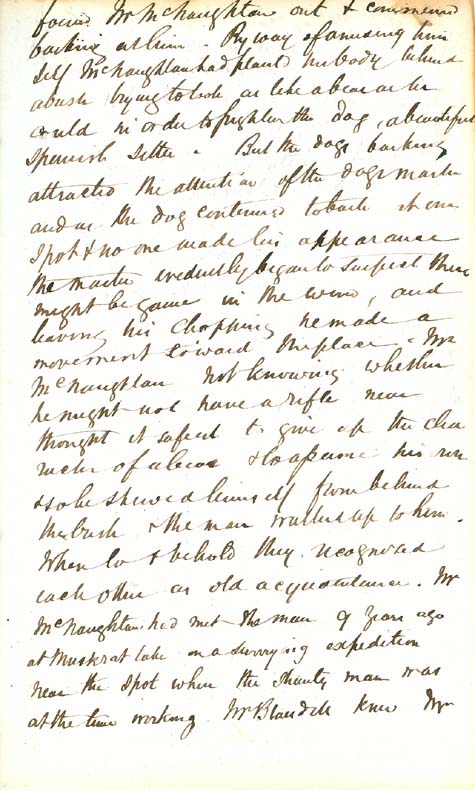 found Mr McNaughtan out & commenced
barking at him. By way of amusing him
self McNaughtan had placed his body behind
a bush trying to look as like a bear as he
could in order to frighten the dog, a beautiful
Spanish Setter. But the dogs barking
attracted the attention of the dogs master
and as the dog continued to bark at one
spot & no one made his appearance
the master evidently began to suspect there
might be game in the wind, and
leaving his Chopping he made a
movement toward the place. Mr
McNaughtan not knowing whether
he might not have a rifle near
thought it safest to give up the cha
racter of a bear & to assume his own
& so he shewed himself from behind
the bush & the man walked up to him.
When lo & behold they recognized
each other as old acquaintance. Mr
McNaughtan had met the man 9 years ago
at Muskrat lake on a surveying expedition
near the spot when the shanty man was
at the time working. Mr Blaudell knew Mr